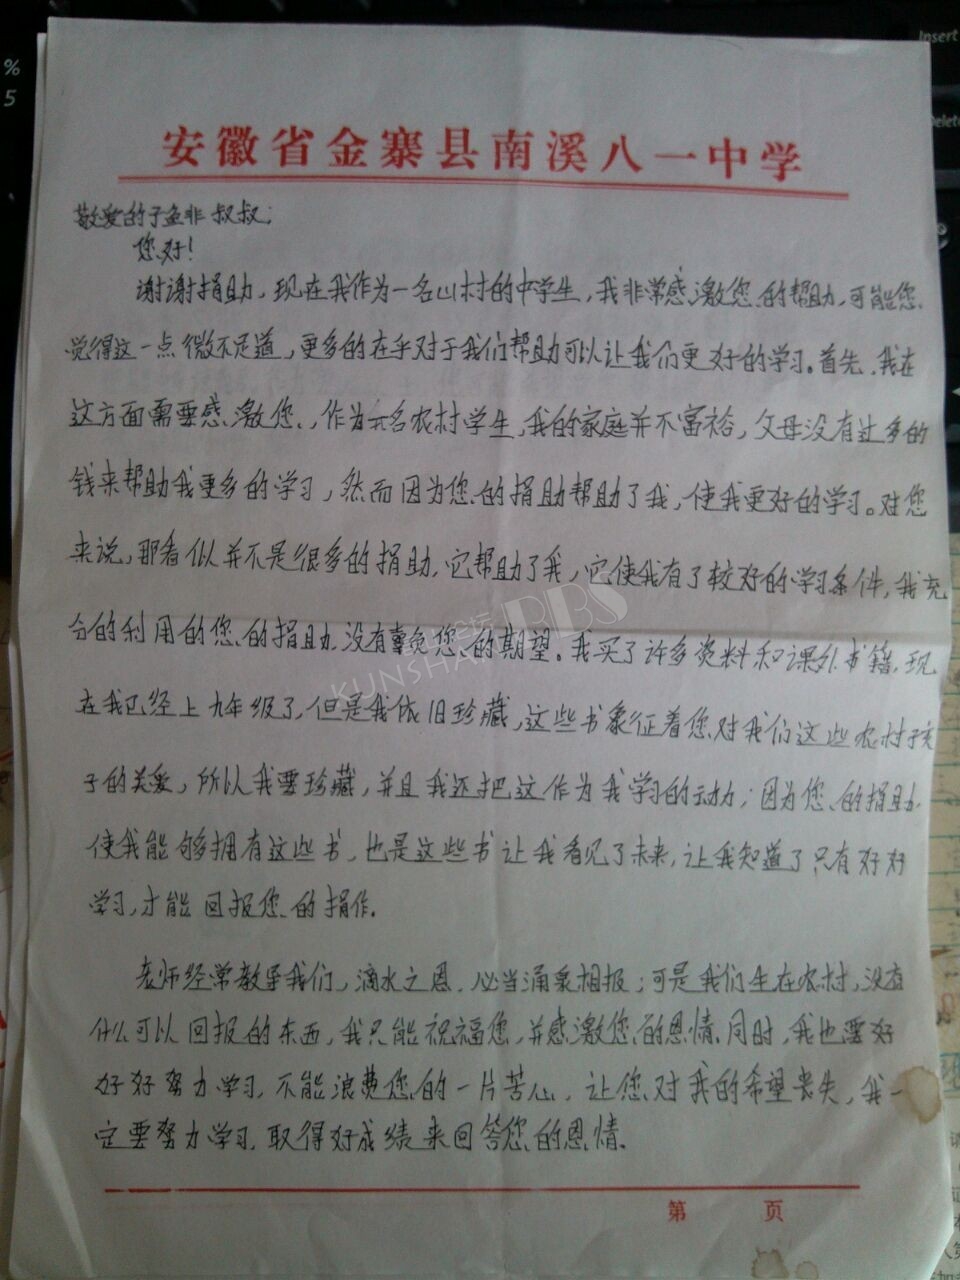 安徽省金寨县南溪八一中学
敬爱的子鱼非叔叔：
您好！
谢谢捐助，现在我作为一名山村的中学生，我非常感激您的帮助，可能您
觉得这一点微不足道，更多的在乎对于我们帮助可以让我们更好的学习。首先，我在
这方面需要感激您，作为一名农村学生，我的家庭并不富裕，父母没有过多的
钱来帮助我更多的学习，然而因为您的捐助帮助了我，使我更好的学习。对您
来说，那看似并不是很多的捐助，它帮助了我，它使我有了较好的学习条件，我充
分的利用的您的捐助，没有辜负您的期望。我买了许多资料和课外书籍，现
在我已经上九年级了，但是我依旧珍藏，这些书象征着您对我们这些农村孩
子的关爱，所以我要珍藏，并且我还把这作为我学习的动力；因为您的捐助，
使我能够拥有这些书，也是这些书让我看见了未来，让我知道了只有好好
学习，才能回报您的捐作。
老师经常教导我们，滴水之恩，必当涌泉相报；可是我们生在农村，没有
什么可以回报的东西，我只能祝福您，并感激您的恩情。同时，我也要好
好好努力学习，不能浪费您的一片苦心，让您对我的希望丧失，我一
定要努力学习，取得好成绩来回答您的恩情。
第 页
KUNSHAN BBS
% 5
Insert
Delete